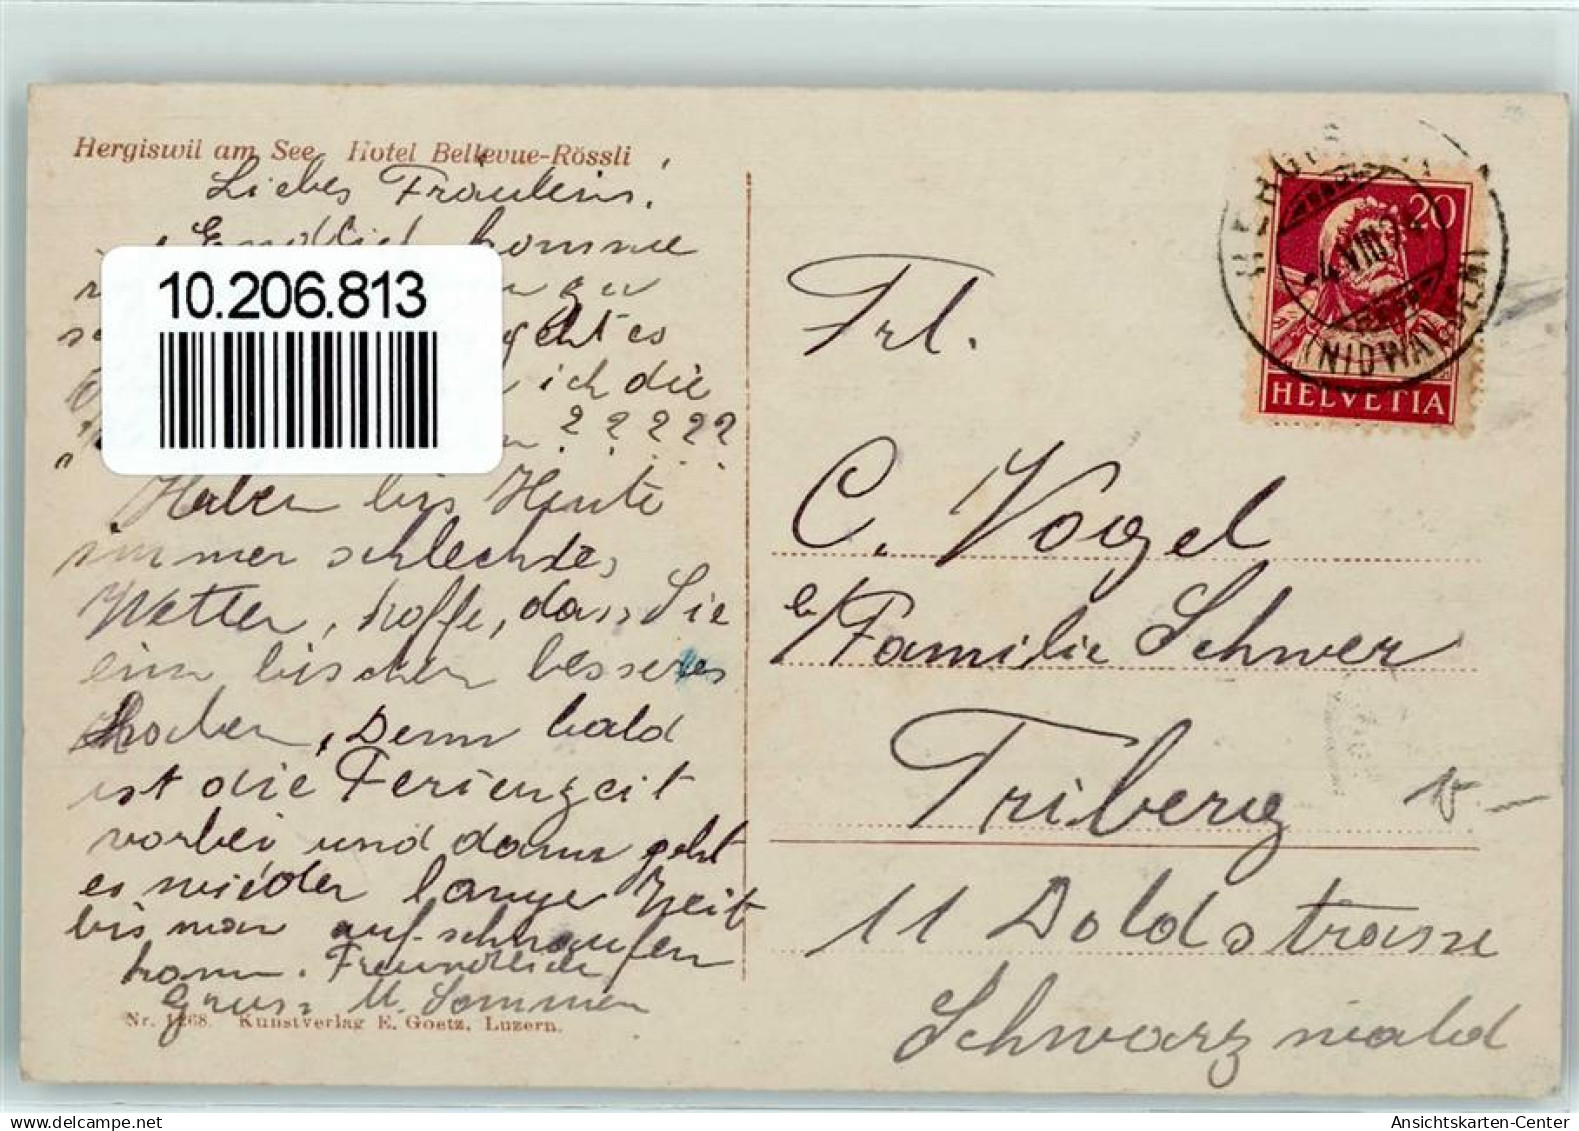 Hergiswil am See Hotel Bellevue-Rössli
Liebes Fräulein!
Endlich komme
zu
geht es
ich die
? ? ? ? ?
10.206.813
Haben bis Heute
immer schlechtes
Wetter, hoffe, dass Sie
ein bischen besseres
haben, Denn bald
ist die Ferienzeit
vorbei und dann geht
es wieder lange Zeit
bis man aufschnaufen
kann. Freundliche
Gruss M. Sommer
Nr. 1268. Kunstverlag E. Goetz, Luzern.
20
HELVETIA
-4.VIII.24
(NIDWALDEN)
Frl.
C. Vogel
b/Familie Schwer
Triberg
11 Doldstrasse
Schwarzwald
Ansichtskarten-Center